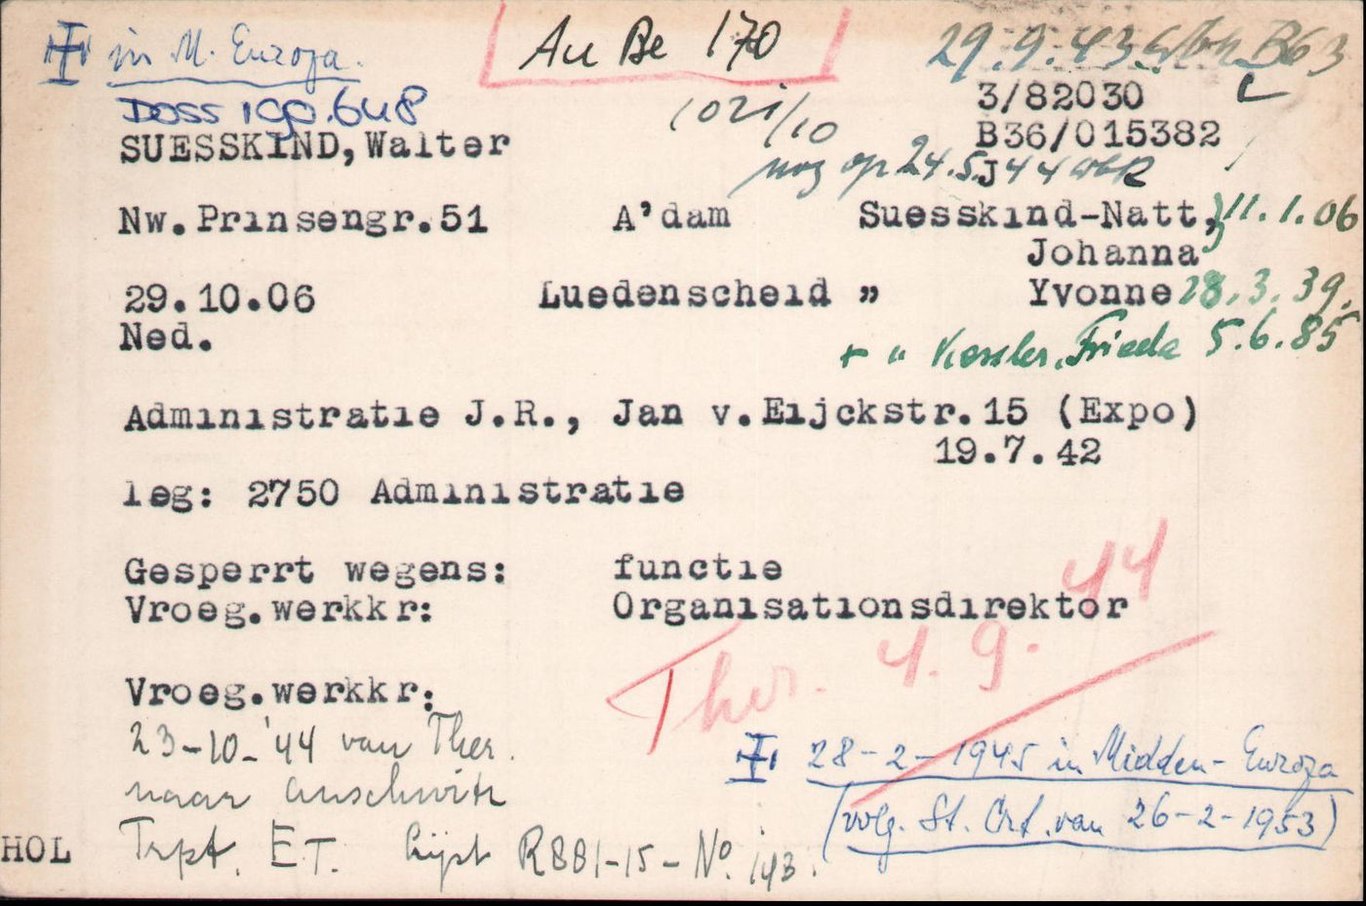 in M. Europa.
Au Be 170
29.9.43 Wbk B63
DOSS 190.648
1021/10
3/82030
B36/015382
SUESSKIND, Walter
nog op 24.5.44 Wbk
J
Nw. Prinsengr. 51 A'dam Suesskind-Natt, 11.1.06
Johanna
29.10.06 Luedenscheid " Yvonne 28.3.39.
Ned.
+ " Kessler, Frieda 5.6.85
Administratie J.R., Jan v. Eijckstr. 15 (Expo)
19.7.42
leg: 2750 Administratie
Gesperrt wegens: functie
Vroeg. werkkr: Organisationsdirektor
Ther. 4.9.44
Vroeg. werkkr:
23-10-'44 van Ther.
naar Auschwitz
28-2-1945 in Midden-Europa
(volg. St. Crt. van 26-2-1953)
HOL Trpt. E.T. Lijst R881-15-No. 143.